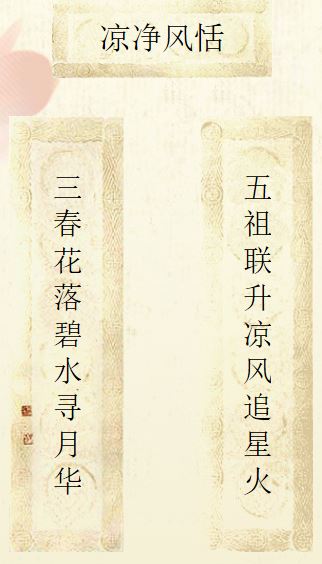 凉净风恬
五祖联升凉风追星火
三春花落碧水寻月华